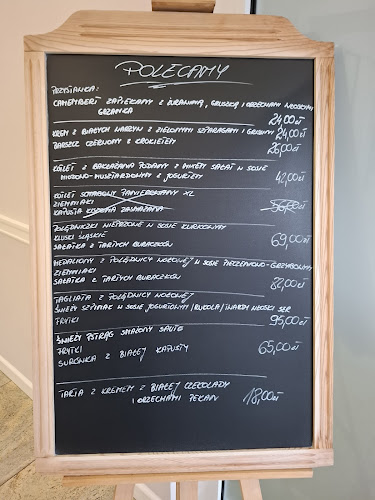 POLECAMY
PRZYSTAWKA:
CAMEMBERT ZAPIEKANY Z ŻURAWINĄ, GRUSZKĄ I ORZECHAMI WŁOSKIMI
GRZANKA 24,00 zł
KREM Z BIAŁYCH WARZYW Z ZIELONYMI SZPARAGAMI I 24,00 zł
BARSZCZ CZERWONY Z KROKIETEM 26,00 zł
KOTLET Z BAKŁAŻANA PODANY Z MIXEM SAŁAT W SOSIE
MIODOWO-MUSZTARDOWYM Z JOGURTEM 42,00 zł
KOTLET SCHABOWY PANIEROWANY XL
ZIEMNIAKI
KAPUSTA ZASMAŻANA 56,00 zł
POLĘDWICZKI WIEPRZOWE W SOSIE KURKOWYM
KLUSKI ŚLĄSKIE
SAŁATKA Z TARTYCH BURACZKÓW 69,00 zł
MEDALIONY Z POLĘDWICY WOŁOWEJ W SOSIE PIECZENIOWO-GRZYBOWYM
ZIEMNIAKI
SAŁATKA Z TARTYCH BURACZKÓW 82,00 zł
TAGLIATA Z POLĘDWICY WOŁOWEJ
ŚWIEŻY SZPINAK W SOSIE JOGURTOWYM/RUKOLA/TWARDY WŁOSKI SER
FRYTKI 95,00 zł
ŚWIEŻY PSTRĄG SMAŻONY SAUTE
FRYTKI
SURÓWKA Z BIAŁEJ KAPUSTY 65,00 zł
TARTA Z KREMEM Z BIAŁEJ CZEKOLADY
I ORZECHAMI PEKAN 18,00 zł